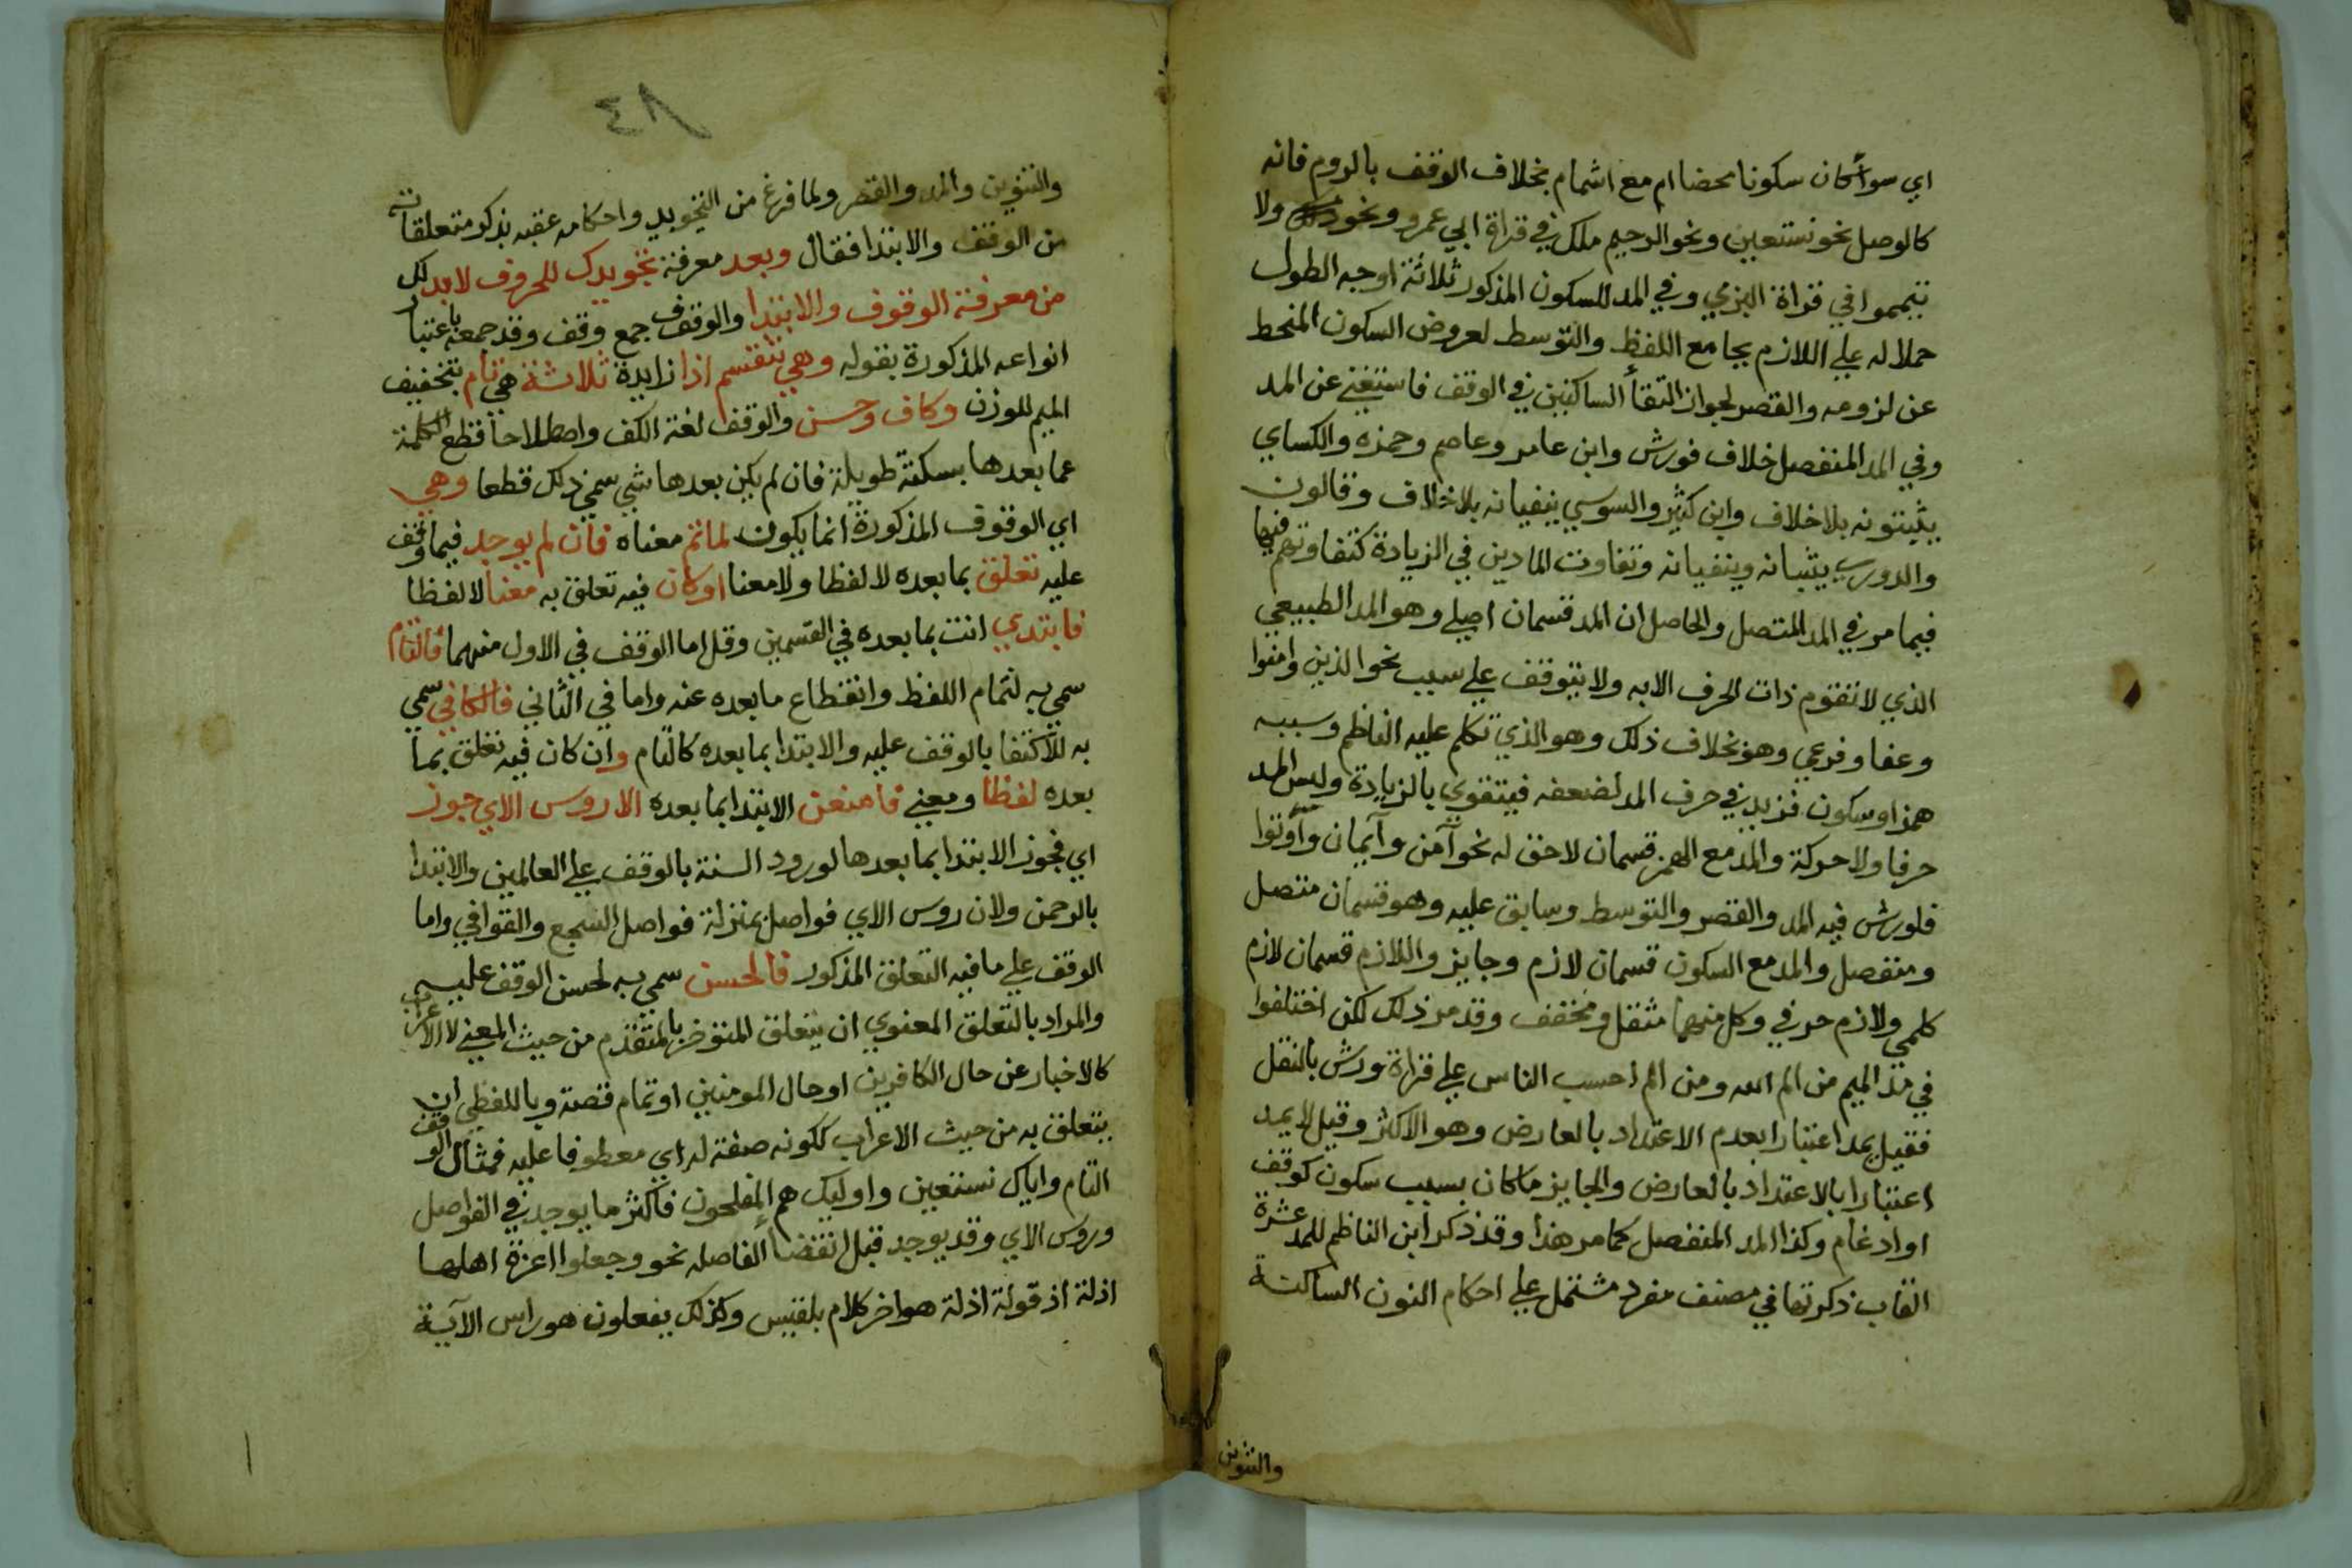 اي سوأكان سكونا محضا ام مع اشمام بخلاف الوقف بالروم فانه
كالوصل نحو نستعين ونحو الرحيم ملك في قراة ابي عمرو ونحو ولا
تيمموا في قراة البزي وفي المد للسكون المذكور ثلاثة اوجه الطول
حملا له علي اللازم بجامع اللفظ والتوسط لعروض السكون المنحط
عن لزومه والقصر لجواز التقأ الساكنين في الوقف فاستغني عن المد
وفي المد المنفصل خلاف فورش وابن عامر وعاصم وحمزه والكساي
يثبتونه بلا خلاف وابن كثير والسوسي ينفيانه بلا خلاف وقالون
والدوري يثبتانه وينفيانه وتفاوت المادين في الزيادة كتفاوتهم فيها
فيما مر في المد المتصل والحاصل ان المد قسمان اصلي وهو المد الطبيعي
الذي لا تقوم ذات الحرف الا به ولا يتوقف علي سبب نحو الذين وامنوا
وعفا وفرعي وهو بخلاف ذلك وهو الذي تكلم عليه الناظم وسببه
همز او سكون فزيد في حرف المد لضعفه فيتقوي بالزيادة وليس المد
حرفا ولا حركة والمد مع الهمز قسمان لاحق له نحو آمن وآيمان وأوتوا
فلورش فيه المد والقصر والتوسط وسابق عليه وهو قسمان متصل
ومنفصل والمد مع السكون قسمان لازم وجايز واللازم قسمان لازم
كلمي ولازم حرفي وكل منهما مثقل ومخفف وقد مر ذلك لكن اختلفوا
في مد الميم من الم الله ومن الم احسب الناس علي قراة ورش بالنقل
فقيل يمد اعتبارا بعدم الاعتداد بالعارض وهو الاكثر وقيل لا يمد
اعتبارا بالاعتداد بالعارض والجايز ما كان بسبب سكون كوقف
او ادغام وكذا المد المنفصل كما مر هذا وقد ذكر ابن الناظم للمد عشرة
القاب ذكرتها في مصنف مفرد مشتمل علي احكام النون الساكنة
والتنوين
٨٤
والتنوين والمد والقصر ولما فرغ من التجويد واحكامه عقبه بذكر متعلقاته
من الوقف والابتدا فقال وبعد معرفة تجويدك للحروف لابد لك
من معرفة الوقوف والابتدا والوقوف جمع وقف وقد جمعه باعتبار
انواعه المذكورة بقوله وهي تنقسم اذا زايدة ثلاثة هي تام بتخفيف
الميم للوزن وكاف وحسن والوقف لغة الكف واصطلاحا قطع الكلمة
عما بعدها بسكتة طويلة فان لم يكن بعدها شي سمي ذلك قطعا وهي
اي الوقوف المذكورة انما يكون لما تم معناه فان لم يوجد فيما وقف
عليه تعلق بما بعده لا لفظا ولا معنا اوكان فيه تعلق به معنا لا لفظا
فابتدي انت بما بعده في القسمين وقل اما الوقف في الاول منهما فالتام
سمي به لتمام اللفظ وانقطاع ما بعده عنه واما في الثاني فالكافي سمي
به للاكتفا بالوقف عليه والابتدا بما بعده كالتام وان كان فيه تعلق بما
بعده لفظا ومعني فامنعن الابتدا بما بعده الا روس الاي جوز
اي فجوز الابتدا بما بعدها لورود السنة بالوقف علي العالمين والابتدا
بالرحمن ولان روس الاي فواصل بمنزلة فواصل السجع والقوافي واما
الوقف علي ما فيه التعلق المذكور فالحسن سمي به لحسن الوقف عليه
والمراد بالتعلق المعنوي ان يتعلق المتوخر بالمتقدم من حيث المعني لا الاعراب
كالاخبار عن حال الكافرين او حال المومنين او تمام قصة وباللفظي ان
يتعلق به من حيث الاعراب ككونه صفة له اي معطوفا عليه فمثال الوقف
التام واياك نستعين واوليك هم المفلحون فاكثر ما يوجد في الفواصل
وروس الاي وقد يوجد قبل انقضا الفاصله نحو وجعلوا اعزة اهلها
اذلة اذ قوله اذلة هو اخر كلام بلقيس وكذلك يفعلون هو راس الآية